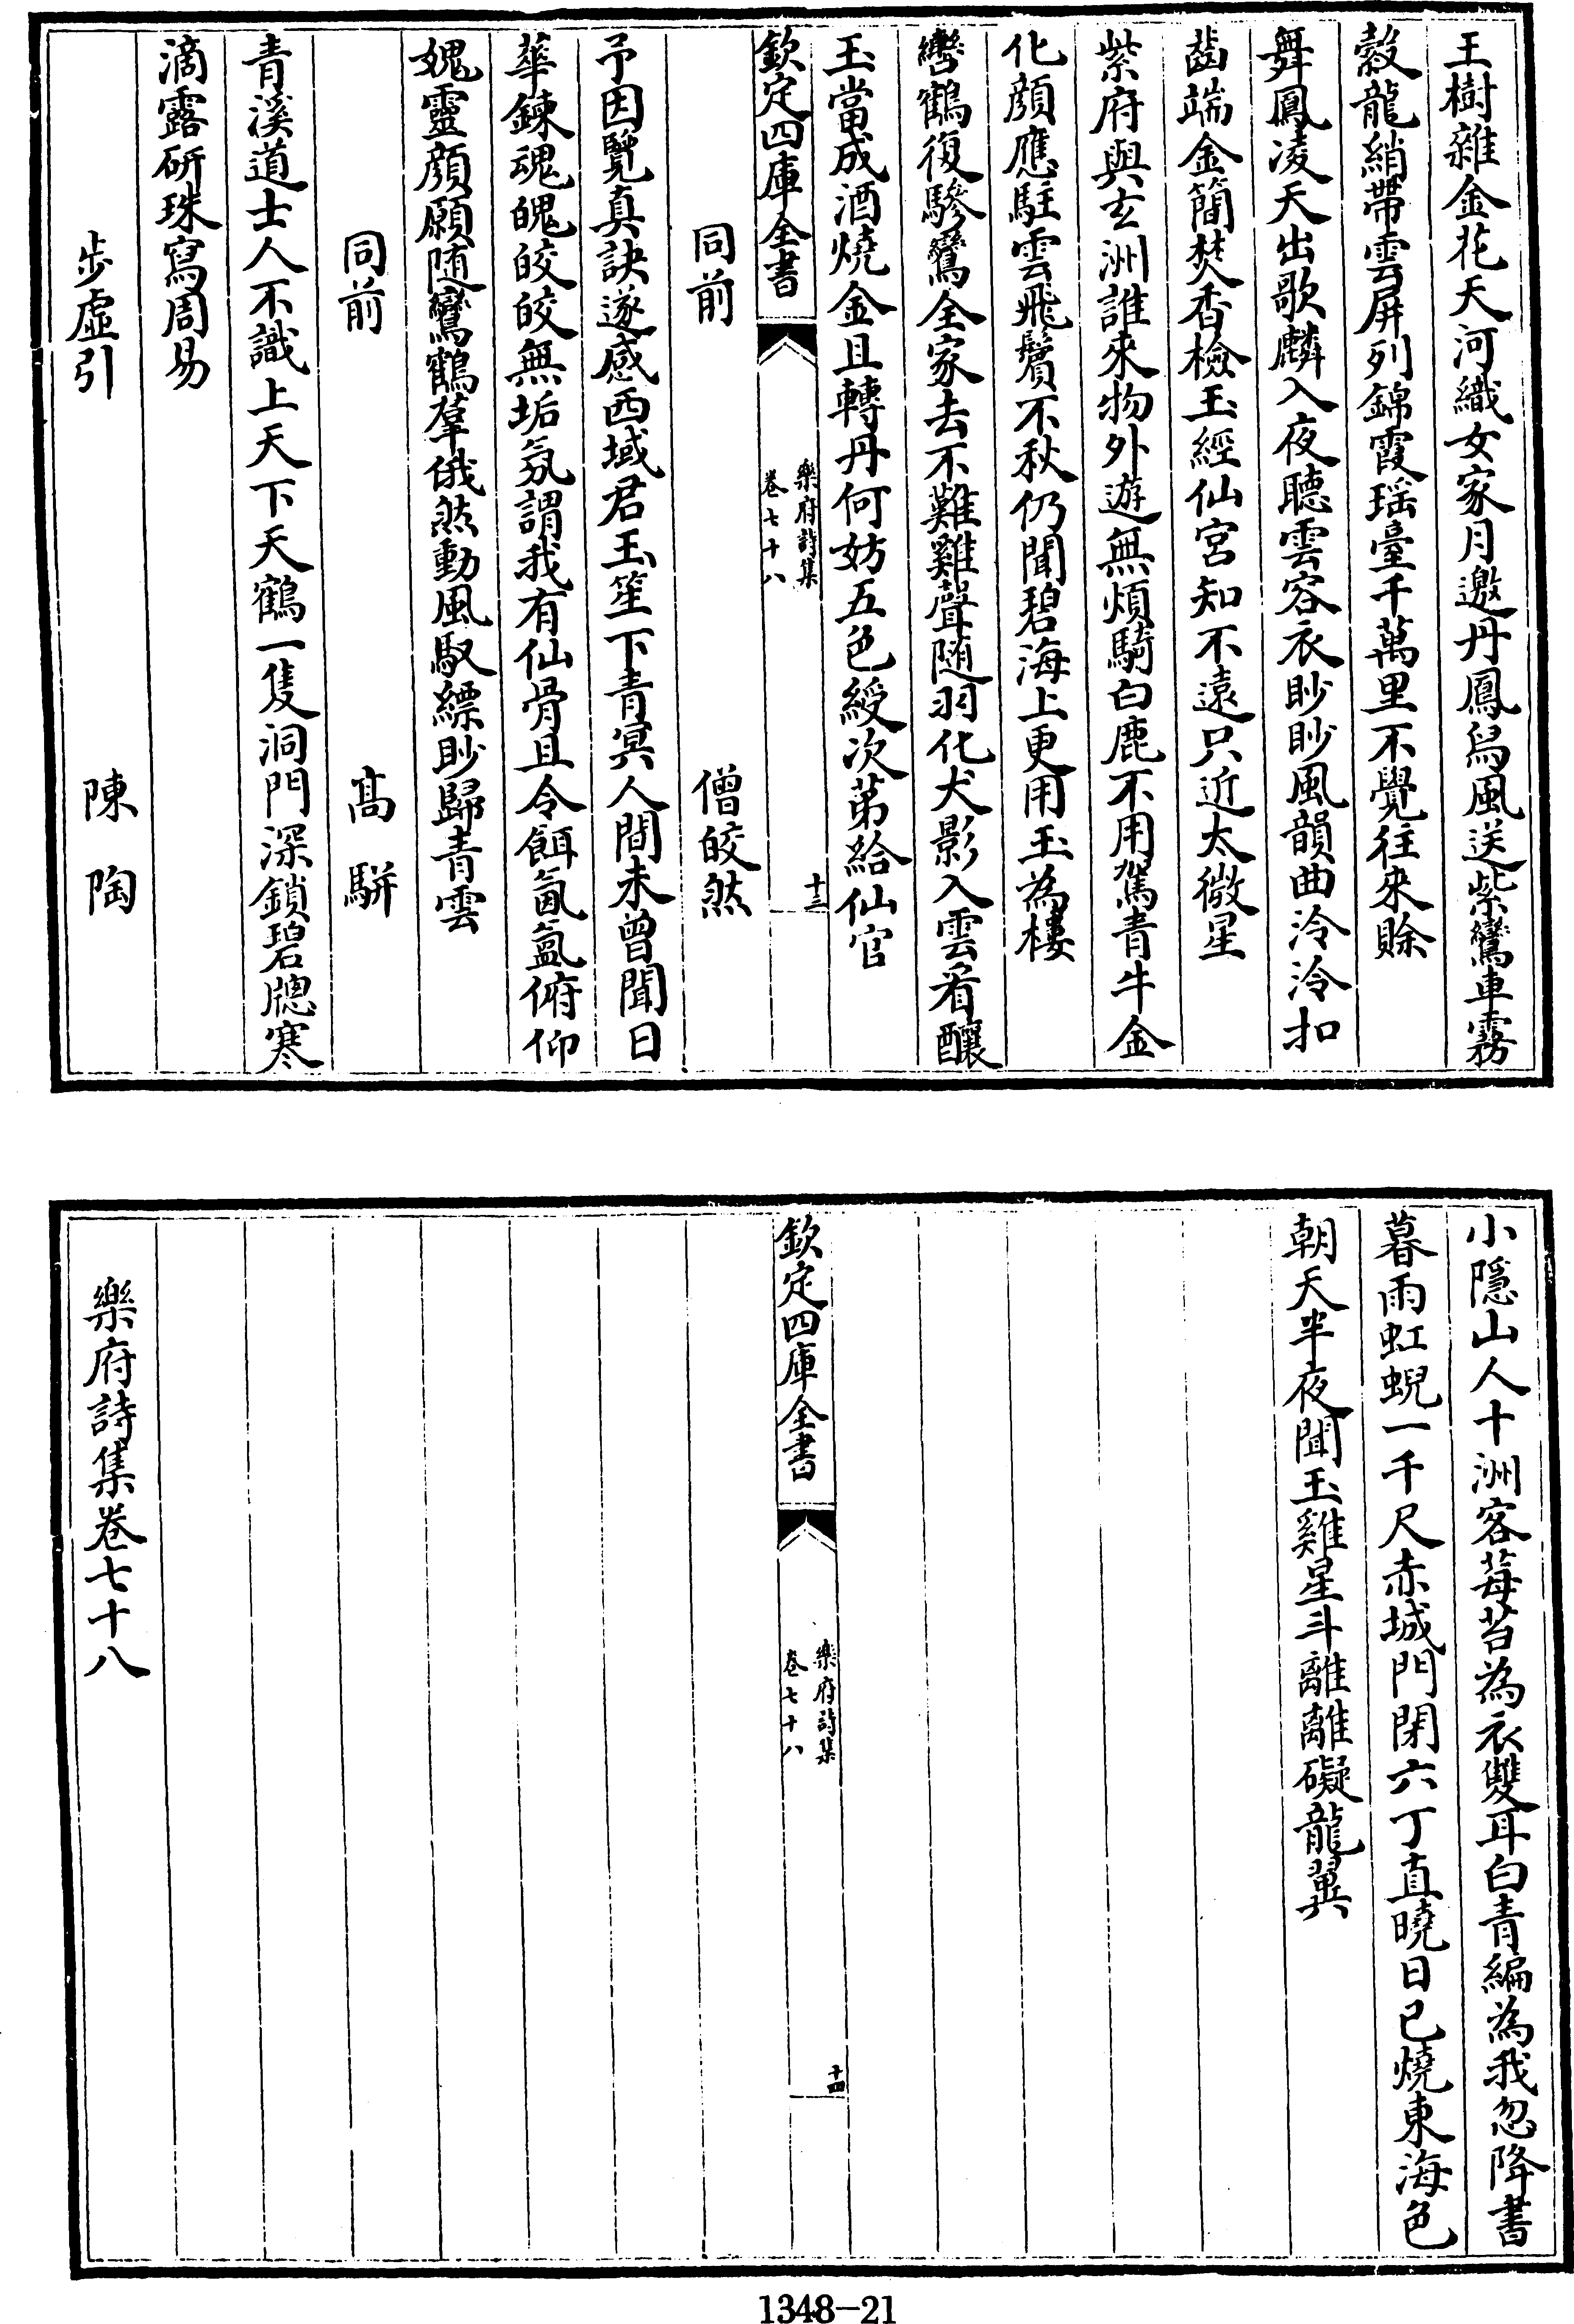 玉樹雜金花天河織女家月邀丹鳳舄風送紫鸞車霧
縠龍綃帶雲屏列錦霞瑶臺千萬里不覺往來賒
舞鳳凌天出歌麟入夜聽雲容衣眇眇風韻曲泠泠扣
齒端金簡焚香檢玉經仙宮知不遠只近太微星
紫府與玄洲誰來物外遊無煩騎白鹿不用駕青牛金
化顔應駐雲飛鬢不秋仍聞碧海上更用玉為樓
轡鶴復驂鸞全家去不難雞聲隨羽化犬影入雲看釀
玉當成酒燒金且轉丹何妨五色綬次第給仙官
欽定四庫全書
樂府詩集
卷七十八
十三
同前 僧皎然
予因覽真訣遂感西域君玉笙下青冥人間未曾聞日
華鍊魂魄皎皎無垢氛謂我有仙骨且令餌氤氳俯仰
媿靈顔願随鸞鶴羣俄然動風馭縹眇歸青雲
同前 髙駢
青溪道士人不識上天下天鶴一隻洞門深鎖碧牕寒
滴露研珠寫周易
步虛引 陳陶
小隱山人十洲客莓苔為衣雙耳白青編為我忽降書
暮雨虹蜺一千尺赤城門閉六丁直曉日已燒東海色
朝天半夜聞玉雞星斗離離礙龍翼
欽定四庫全書
樂府詩集
卷七十八
十四
樂府詩集卷七十八
1348-21